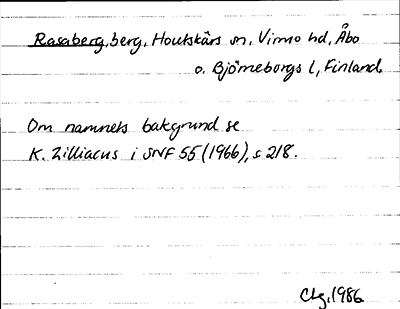 Rasaberg, berg, Houtskärs sn, Virmo hd, Åbo
o. Björneborgs l, Finland.
Om namnets bakgrund se
K. Zilliacus i SNF 55 (1966), s 218.
Clg. 1986